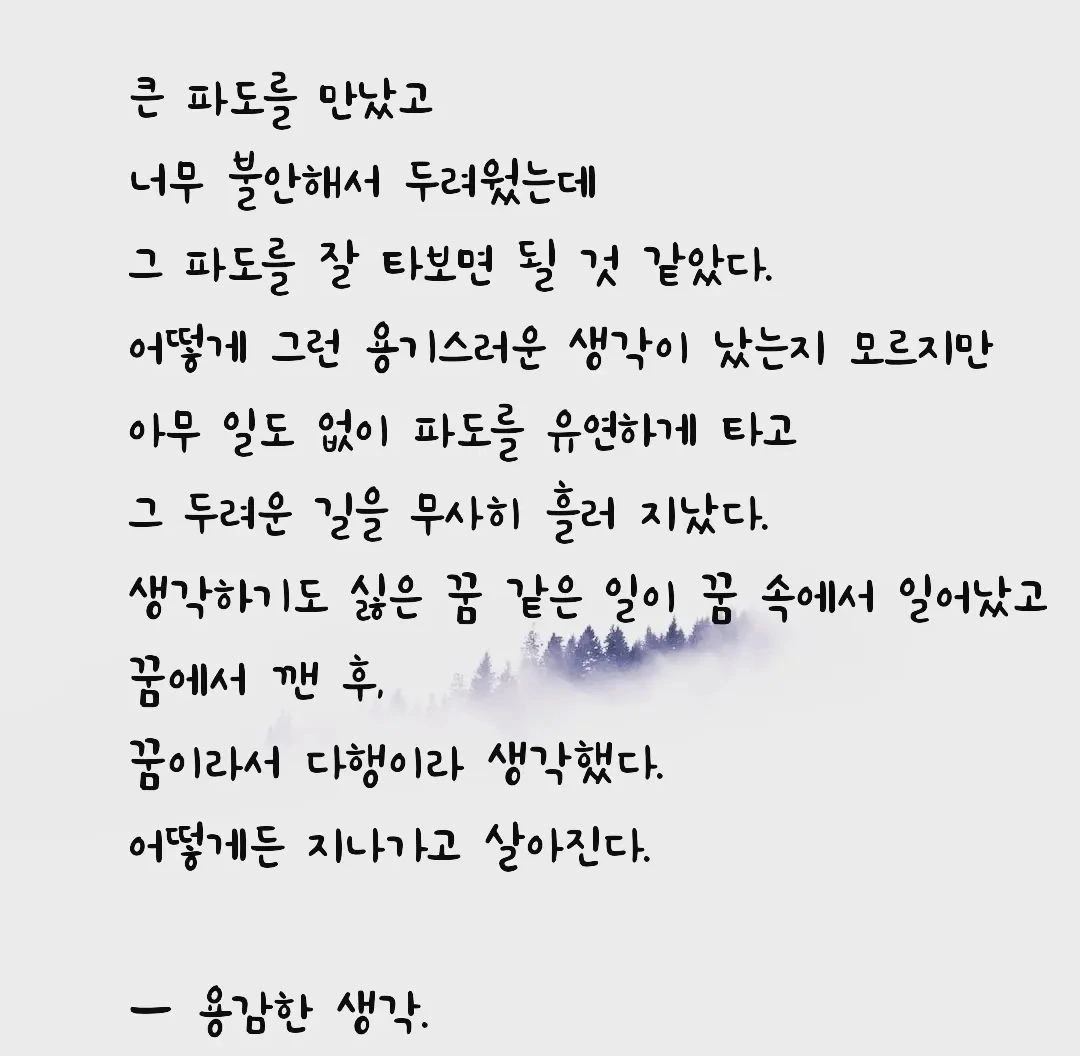 큰 파도를 만났고
너무 불안해서 두려웠는데
그 파도를 잘 타보면 될 것 같았다.
어떻게 그런 용기스러운 생각이 났는지 모르지만
아무 일도 없이 파도를 유연하게 타고
그 두려운 길을 무사히 흘러 지났다.
생각하기도 싫은 꿈 같은 일이 꿈 속에서 일어났고
꿈에서 깬 후,
꿈이라서 다행이라 생각했다.
어떻게든 지나가고 살아진다.
— 용감한 생각.